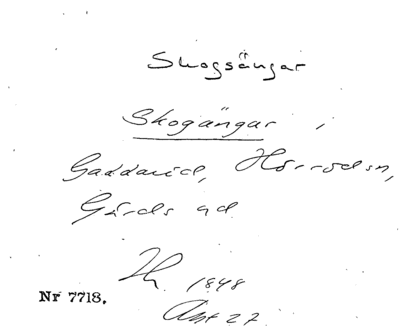 Skogsängar
Skogängar,
Gaddaröd, Hörrödsn,
Gärds hd
1848
Nr 7718.
Akt 27